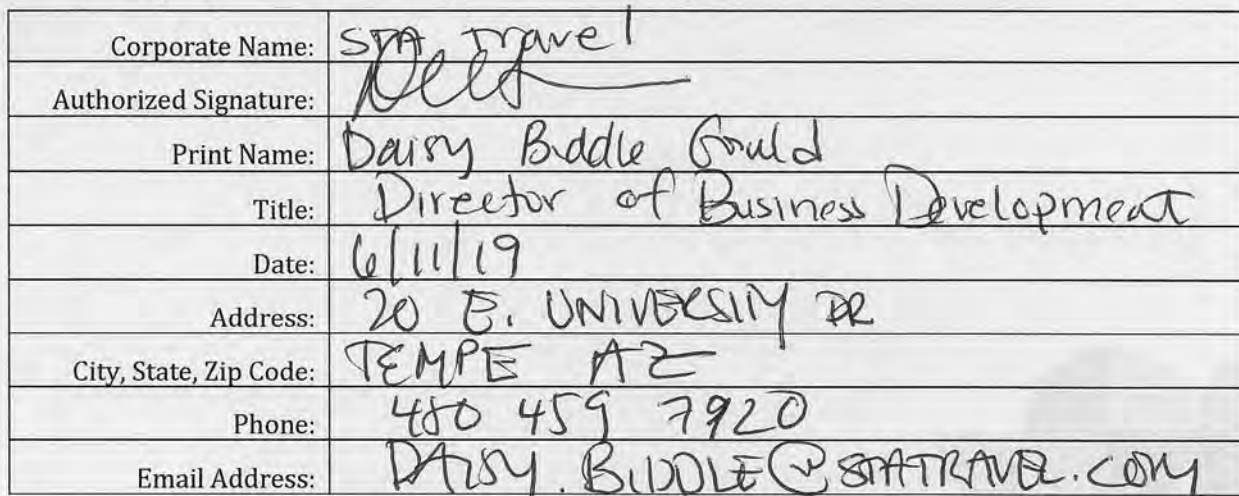 Corporate Name: STA Travel
Authorized Signature:
Print Name: Daisy Biddle Gould
Title: Director of Business Development
Date: 6/11/19
Address: 20 E. UNIVERSITY DR
City, State, Zip Code: TEMPE AZ
Phone: 480 459 7920
Email Address: DAISY.BIDDLE@STATRAVEL.COM